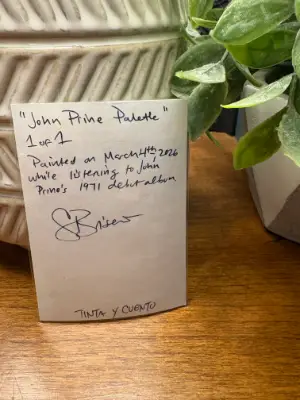 "John Prine Palette"
1 of 1
Painted on March 4th 2026
while listening to John
Prine's 1971 debut album
TINTA Y CUENTO